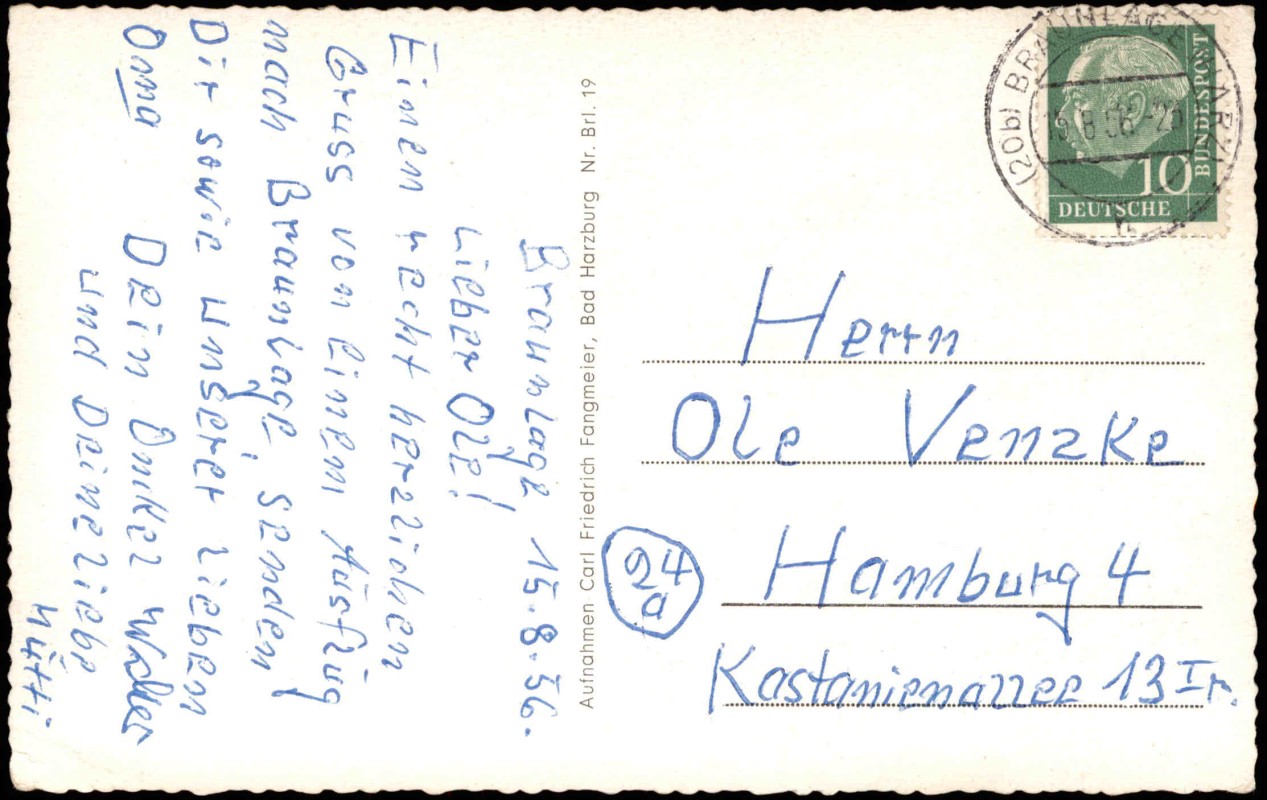 Braunlage, 15.8.56.
Lieber Ole!
Einen recht herzlichen
Gruss von einem Ausflug
nach Braunlage, senden
Dir sowie unserer lieben
Oma Dein Onkel Walter
und Deine liebe
Mutti
Aufnahmen Carl Friedrich Fangmeier, Bad Harzburg Nr. Brl. 19
(20b) BRAUNLAGE (HARZ)
15.8.56-20
h
BUNDESPOST
10
DEUTSCHE
Herrn
Ole Venzke
24
a
Hamburg 4
Kastanienallee 13 I r.